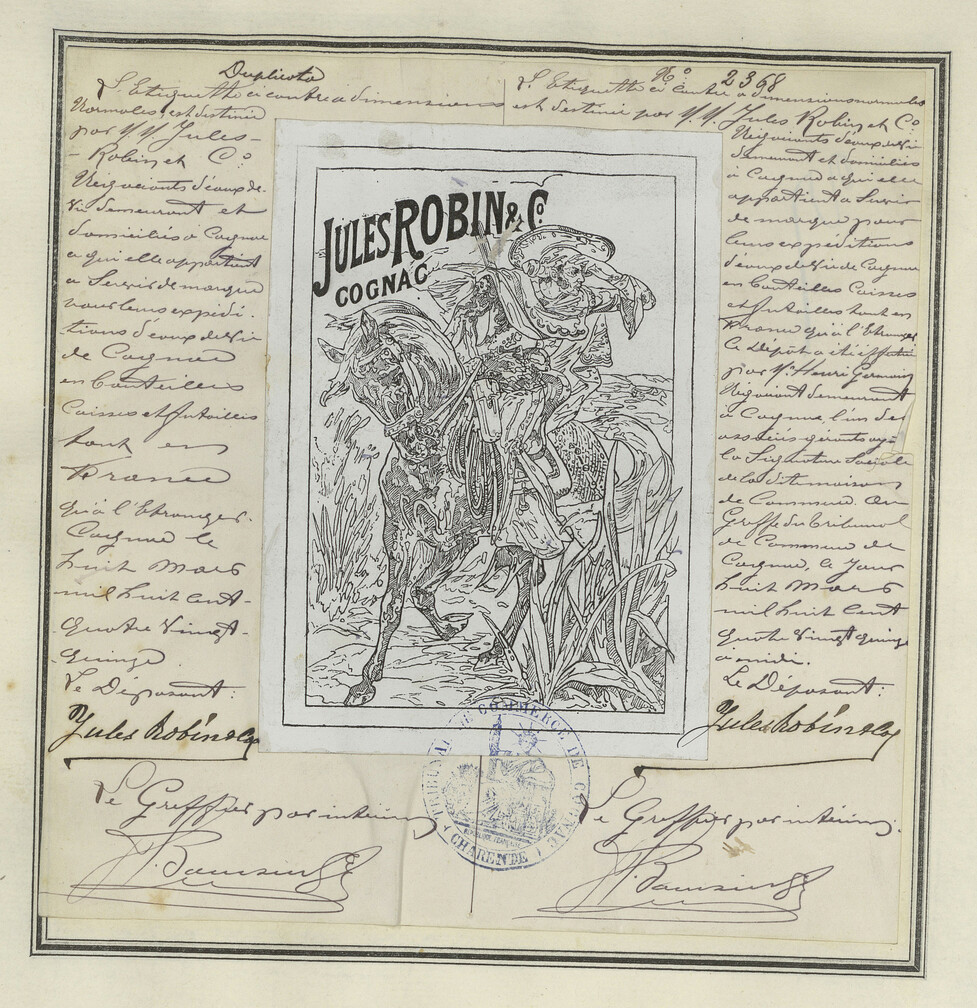 Duplicata
L'Etiquette ci contre a dimensions
Normales, est destinée
par MM Jules
Robin et Co
Négociants d'eaux-de-
vie demeurant et
domiciliés à Cognac
a qui elle appartient
a Servir de marque
pour leurs expédi-
tions d'eaux de Vie
de Cognac
en Bouteilles
Caisses et futailles
tant en
France
qu'à l'Etranger.
Cognac le
huit Mars
mil huit cent-
quatre Vingt-
quinze
Le Déposant:
Jules Robin & Co
Le Greffier par intérim
JULES ROBIN & Co.
COGNAC
No 2368
L'Etiquette ci contre a dimensions normales
est destinée par M.M. Jules Robin et Co
Négociants d'eaux de Vie
demeurant et domiciliés
à Cognac a qui elle
appartient a Servir
de marque pour
leurs expéditions
d'eaux de Vie de Cognac
en Bouteilles Caisses
et futailles tant en
France qu'à l'Etranger
Ce Dépôt a été effectué
par Mr Henri Germain
Négociant demeurant
à Cognac, l'un des
associés gérants ayant
la Signature Sociale
de la dite maison
de Commerce au
Greffe du Tribunal
de Commerce de
Cognac, le jour
huit Mars
mil huit Cent
quatre Vingt quinze
à midi.
Le Déposant:
Jules Robin & Co
Le Greffier par intérim.
TRIBUNAL DE COMMERCE DE COGNAC
CHARENTE